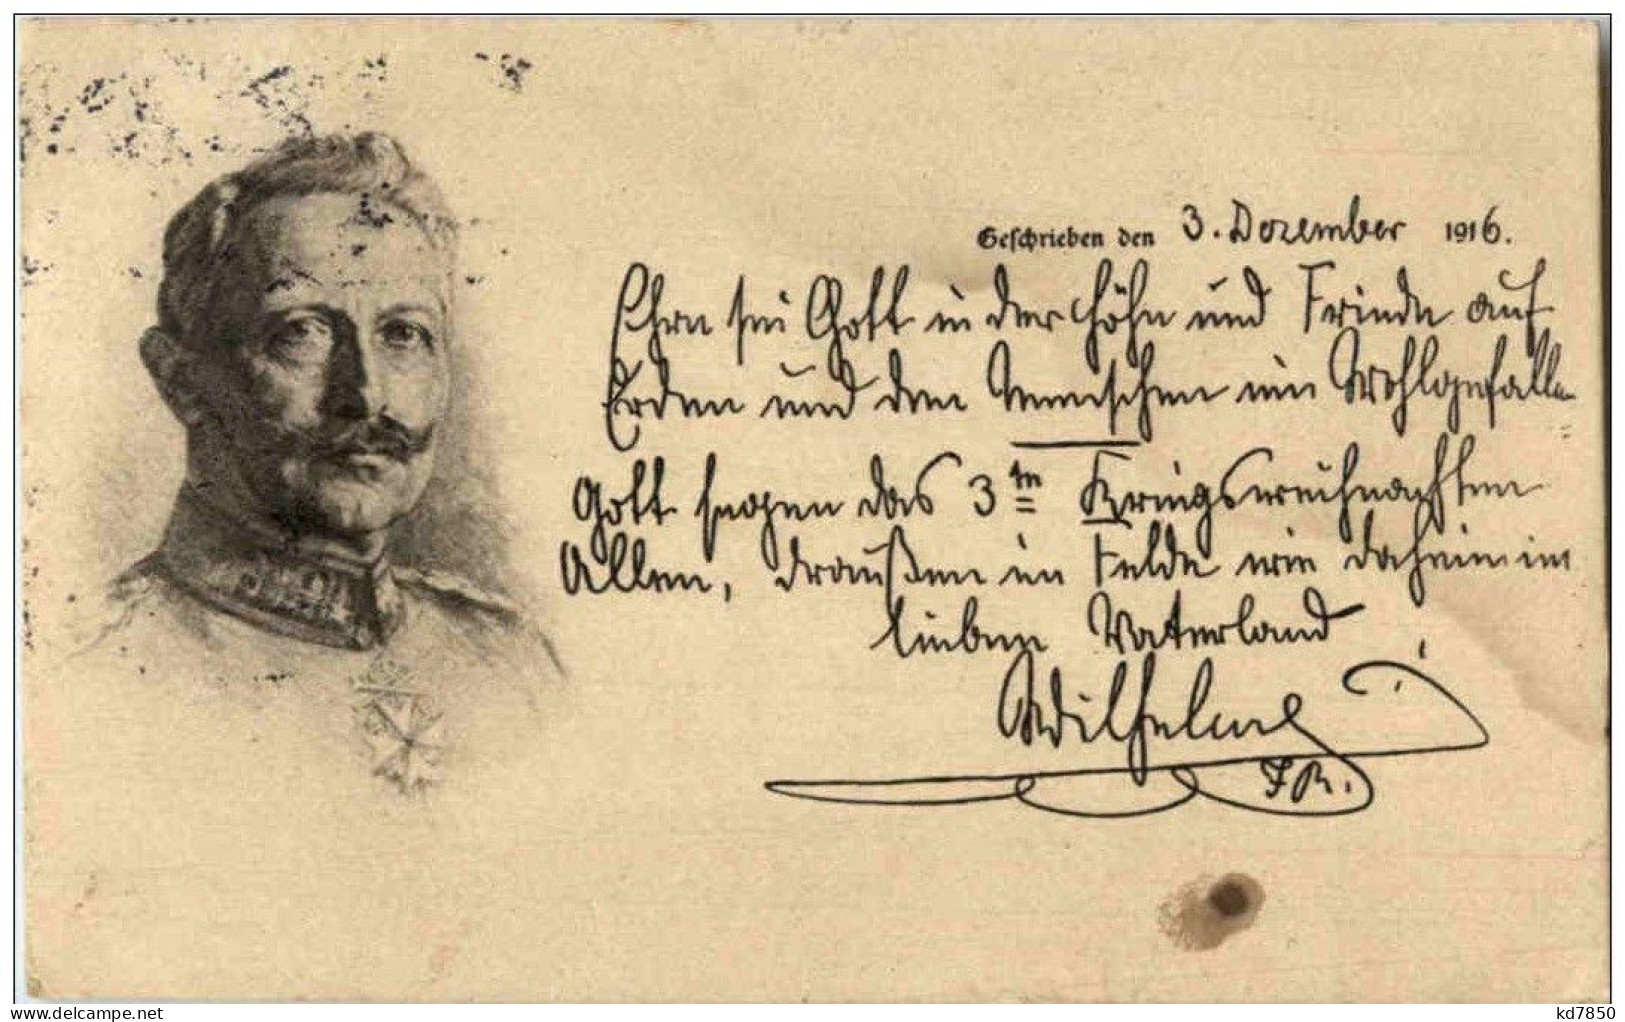 Geschrieben den 3. Dezember 1916.
Ehre sei Gott in der Höhe und Friede auf
Erden und den Menschen ein Wohlgefallen
Gott segen das 3te Kriegsweihnachten
Allen, draußen im Felde wie daheim im
lieben Vaterland
Wilhelm
I R.
delcampe.net
kd7850